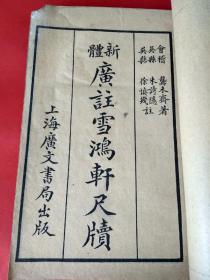 會稽 龔未齋著
吳縣 朱詩隱註
吳縣 徐慎幾
新體
廣註雪鴻軒尺牘
上海廣文書局出版